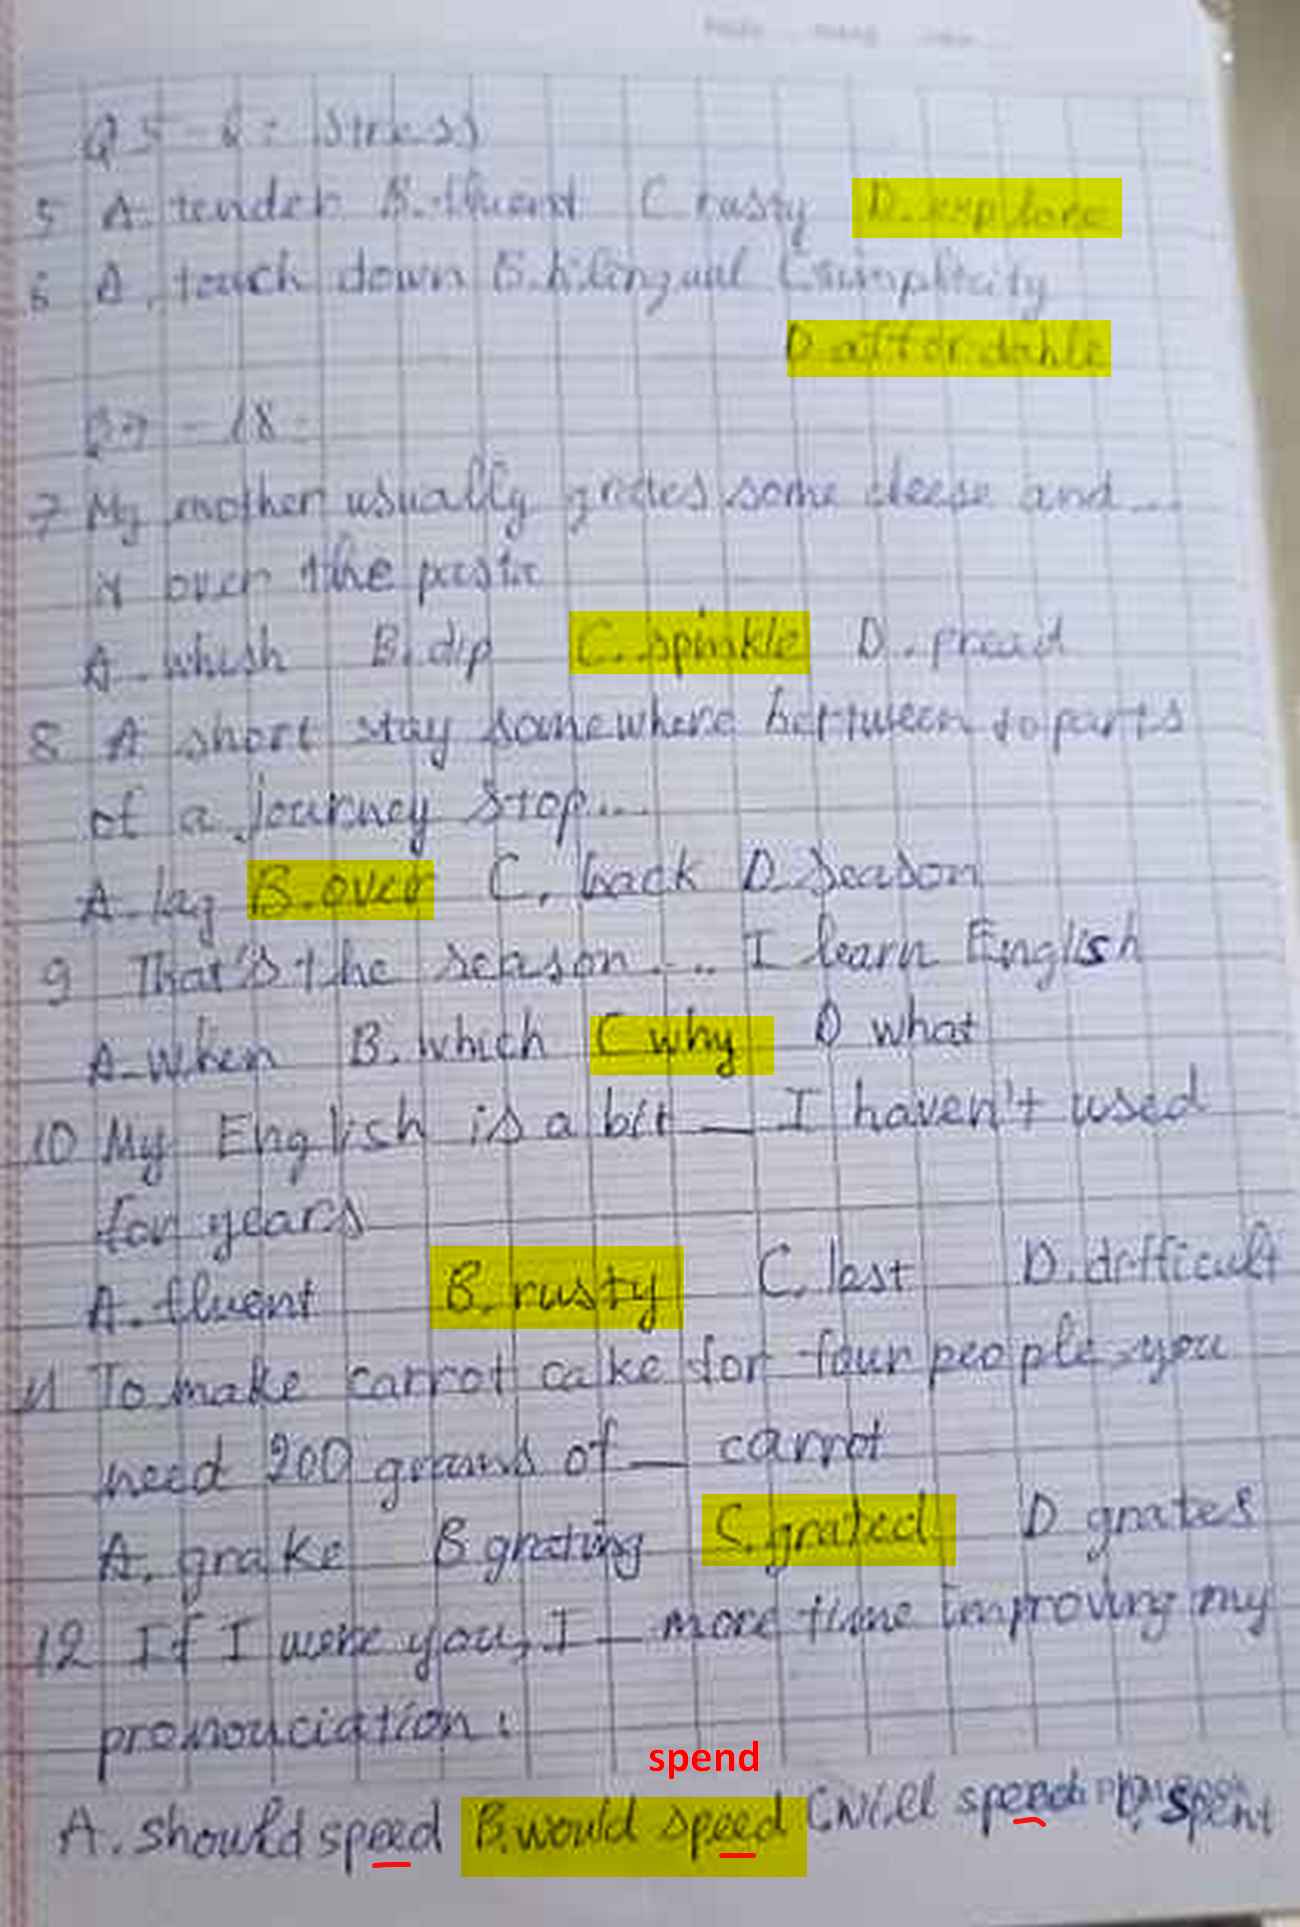 Q5-6: Stress
5 A. tender B. fluent C. rusty D. explore
6 A. touch down B. bilingual C simplicity
D affordable
Q7-18:
7 My mother usually grates some cleese and...
it over the pasta
A. whish B. dip C. spinkle D. pread
8 A short stay somewhere bertween to parts
of a journey stop...
A. lag B. over C. back D. season
9 That's the season.... I learn English
A. when B. which C why D what
10 My English is a bit __ I haven't used
for years
A. fluent B. rusty C. lost D. difficult
11 To make carrot cake for four people, you
need 200 grams of __ carrot
A. grake B grating C. grated D grates
12 If I were you, I __ more time improving my
pronouciation:
spend
A. should speed B. would speed C will speed D. spent